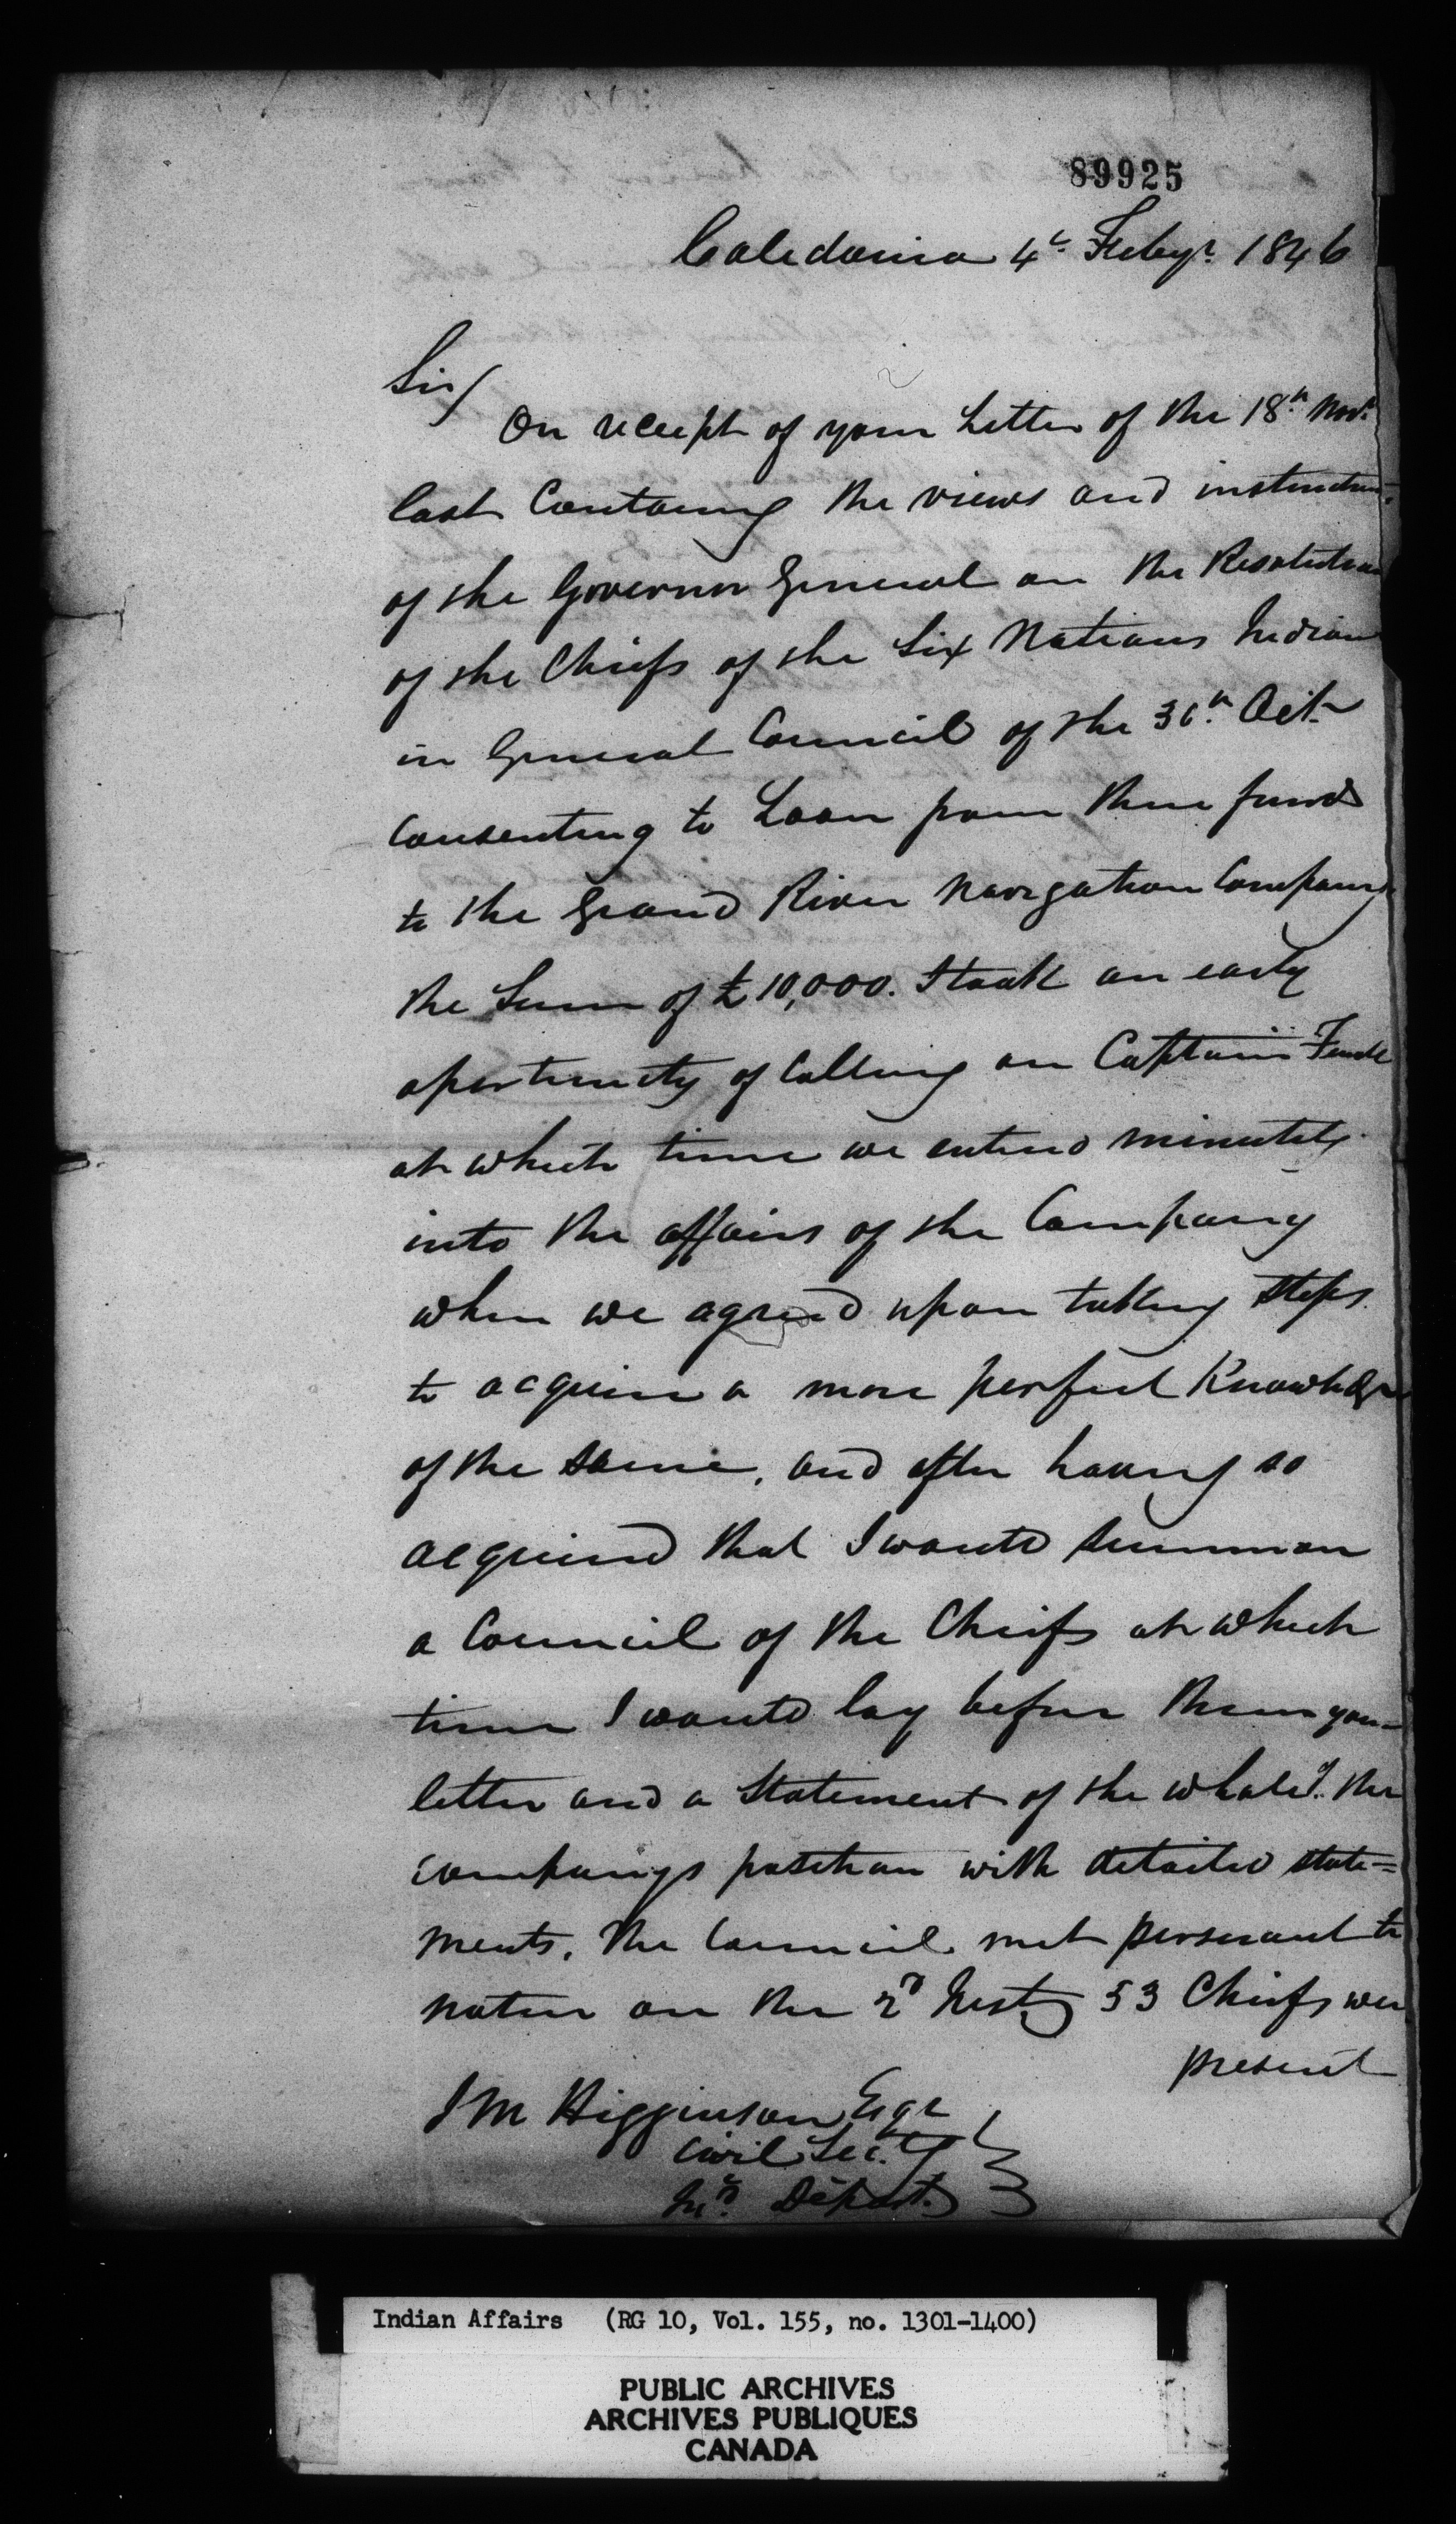 89925
Caledonia 4th Feby. 1846
Sir/
On receipt of your Letter of the 18th Novr.
last Containg the views and instruction
of the Governor General on the Resolutions
of the Chiefs of the Six Nations Indians
in General Council of the 30th Oct
Consenting to Loan from there funds
to the Grand River Navigation Company
the Sum of £10,000. I took an early
oportunity of Calling on Captain
at which time we entered minutely
into the affairs of the Company
when we agreed upon taking Steps
to acquire a more perfect Knowledge
of the Same, and after having so
acquired that I would Summon
a Council of the Chiefs at which
time I would lay before them your
letter and a Statement of the whole of the
companys position with detailed state=
ments. The Council met persuant to
notice on the 2d 53 Chiefs were
present
J M Higginson Esqr
Civil Secty
In'd Depart.
Indian Affairs (RG 10, Vol. 155, no. 1301-1400)
PUBLIC ARCHIVES
ARCHIVES PUBLIQUES
CANADA